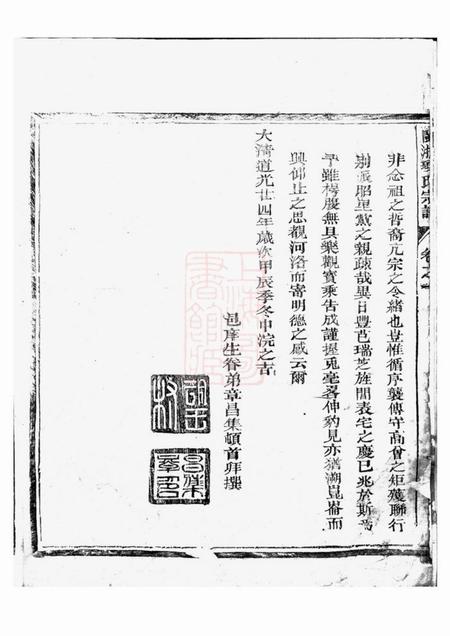 氏宗譜
卷之
非念祖之哲裔亢宗之令緒也豈惟循序襲傳守高曾之矩矱聯行
別派昭里黨之親疎哉異日豐芑瑞芝旌閭表宅之慶已兆於斯焉
予雖樗腹無具樂觀寶乘告成謹握兎毫畧伸豹見亦猶溯崑崙而
興仰止之思觀河洛而寄明德之感云爾
大清道光廿四年歲次甲辰季冬中浣之吉
邑庠生眷弟章昌集頓首拜撰